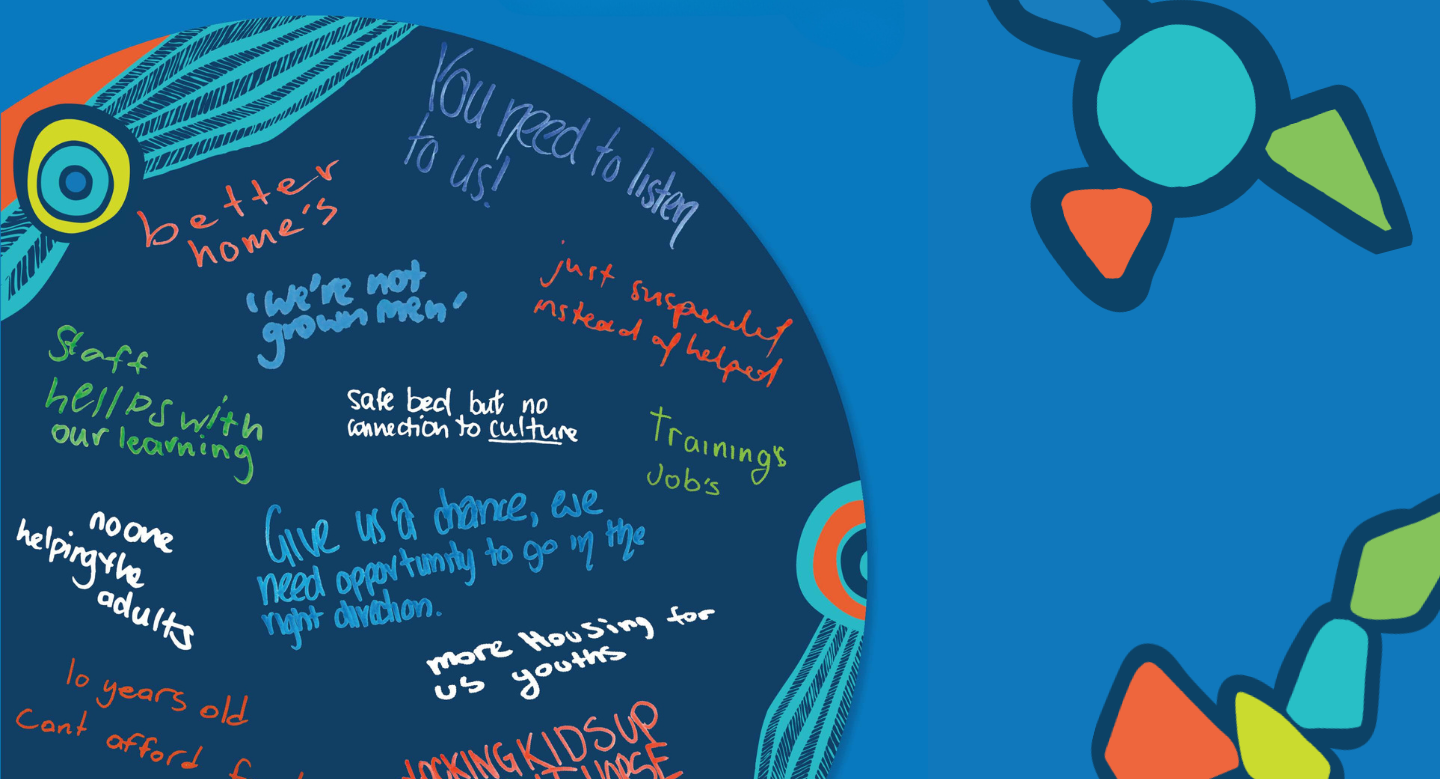 You need to listen
to us!
better
home's
'we're not
grown men'
just suspended
instead of helped
Staff
hellps with
our learning
safe bed but no
connection to culture
Training's
Job's
no one
helping the
adults
Give us a chance, we
need opportunity to go in the
right direction.
more Housing for
us youths
10 years old
Cant afford
KIDS UP